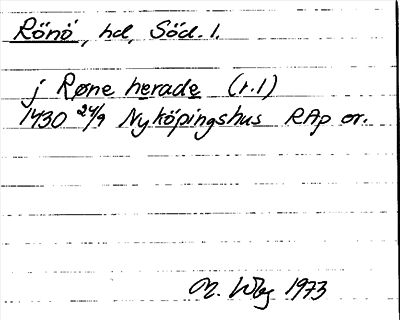 Rönö, hd, Söd. l.
j Røne herade (r.1)
1430 24/9 Nyköpingshus RAp or.
M. Wbg 1973